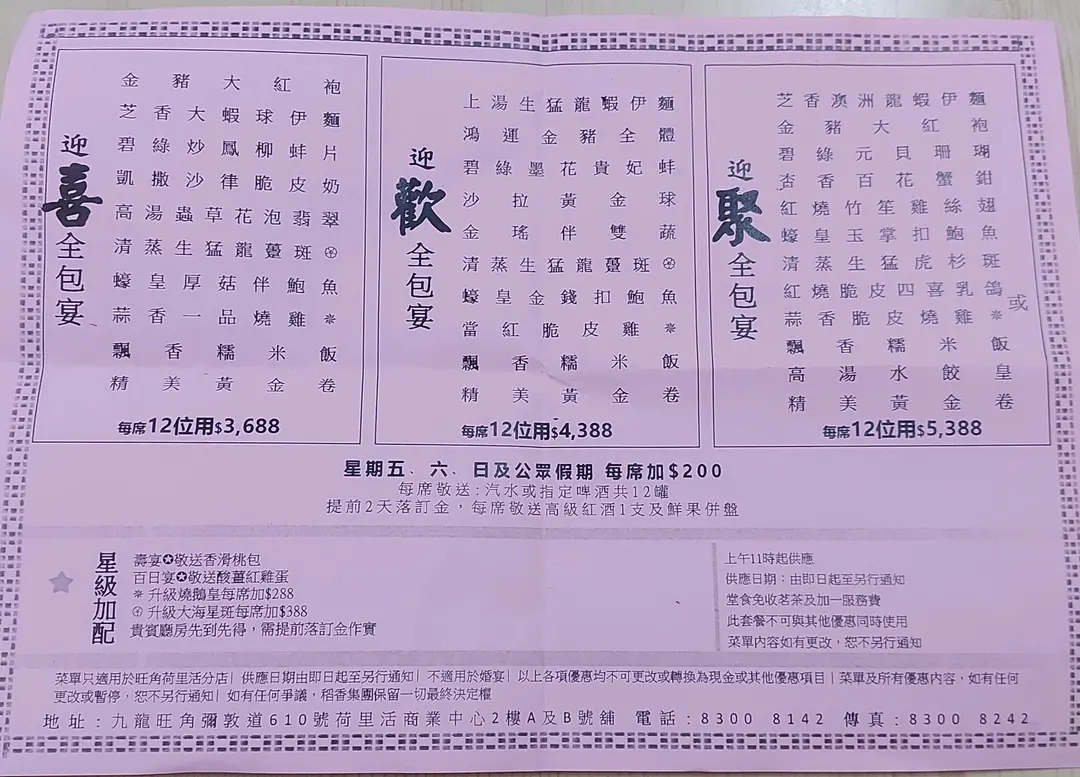 迎喜全包宴
金豬大紅袍
芝香大蝦球伊麵
碧綠炒鳳柳蚌片
凱撒沙律脆皮奶
高湯蟲草花泡翡翠
清蒸生猛龍躉斑㊉
蠔皇厚菇伴鮑魚
蒜香一品燒雞＊
飄香糯米飯
精美黃金卷
每席12位用$3,688
迎歡全包宴
上湯生猛龍蝦伊麵
鴻運金豬全體
碧綠墨花貴妃蚌
沙拉黃金球
金瑤伴雙蔬
清蒸生猛龍躉斑㊉
蠔皇金錢扣鮑魚
當紅脆皮雞＊
飄香糯米飯
精美黃金卷
每席12位用$4,388
迎聚全包宴
芝香澳洲龍蝦伊麵
金豬大紅袍
碧綠元貝珊瑚
杏香百花蟹鉗
紅燒竹笙雞絲翅
蠔皇玉掌扣鮑魚
清蒸生猛虎杉斑
紅燒脆皮四喜乳鴿或
蒜香脆皮燒雞＊
飄香糯米飯
高湯水餃皇
精美黃金卷
每席12位用$5,388
星期五、六、日及公眾假期 每席加$200
每席敬送:汽水或指定啤酒共12罐
提前2天落訂金，每席敬送高級紅酒1支及鮮果併盤
星級加配
壽宴✪敬送香滑桃包
百日宴✪敬送酸薑紅雞蛋
＊升級燒鵝皇每席加$288
㊉升級大海星斑每席加$388
貴賓廳房先到先得，需提前落訂金作實
上午11時起供應
供應日期：由即日起至另行通知
堂食免收茗茶及加一服務費
此套餐不可與其他優惠同時使用
菜單內容如有更改，恕不另行通知
菜單只適用於旺角荷里活分店| 供應日期由即日起至另行通知| 不適用於婚宴| 以上各項優惠均不可更改或轉換為現金或其他優惠項目| 菜單及所有優惠內容，如有任何
更改或暫停，恕不另行通知| 如有任何爭議，稻香集團保留一切最終決定權
地址：九龍旺角彌敦道610號荷里活商業中心2樓A及B號舖 電話：8300 8142 傳真：8300 8242